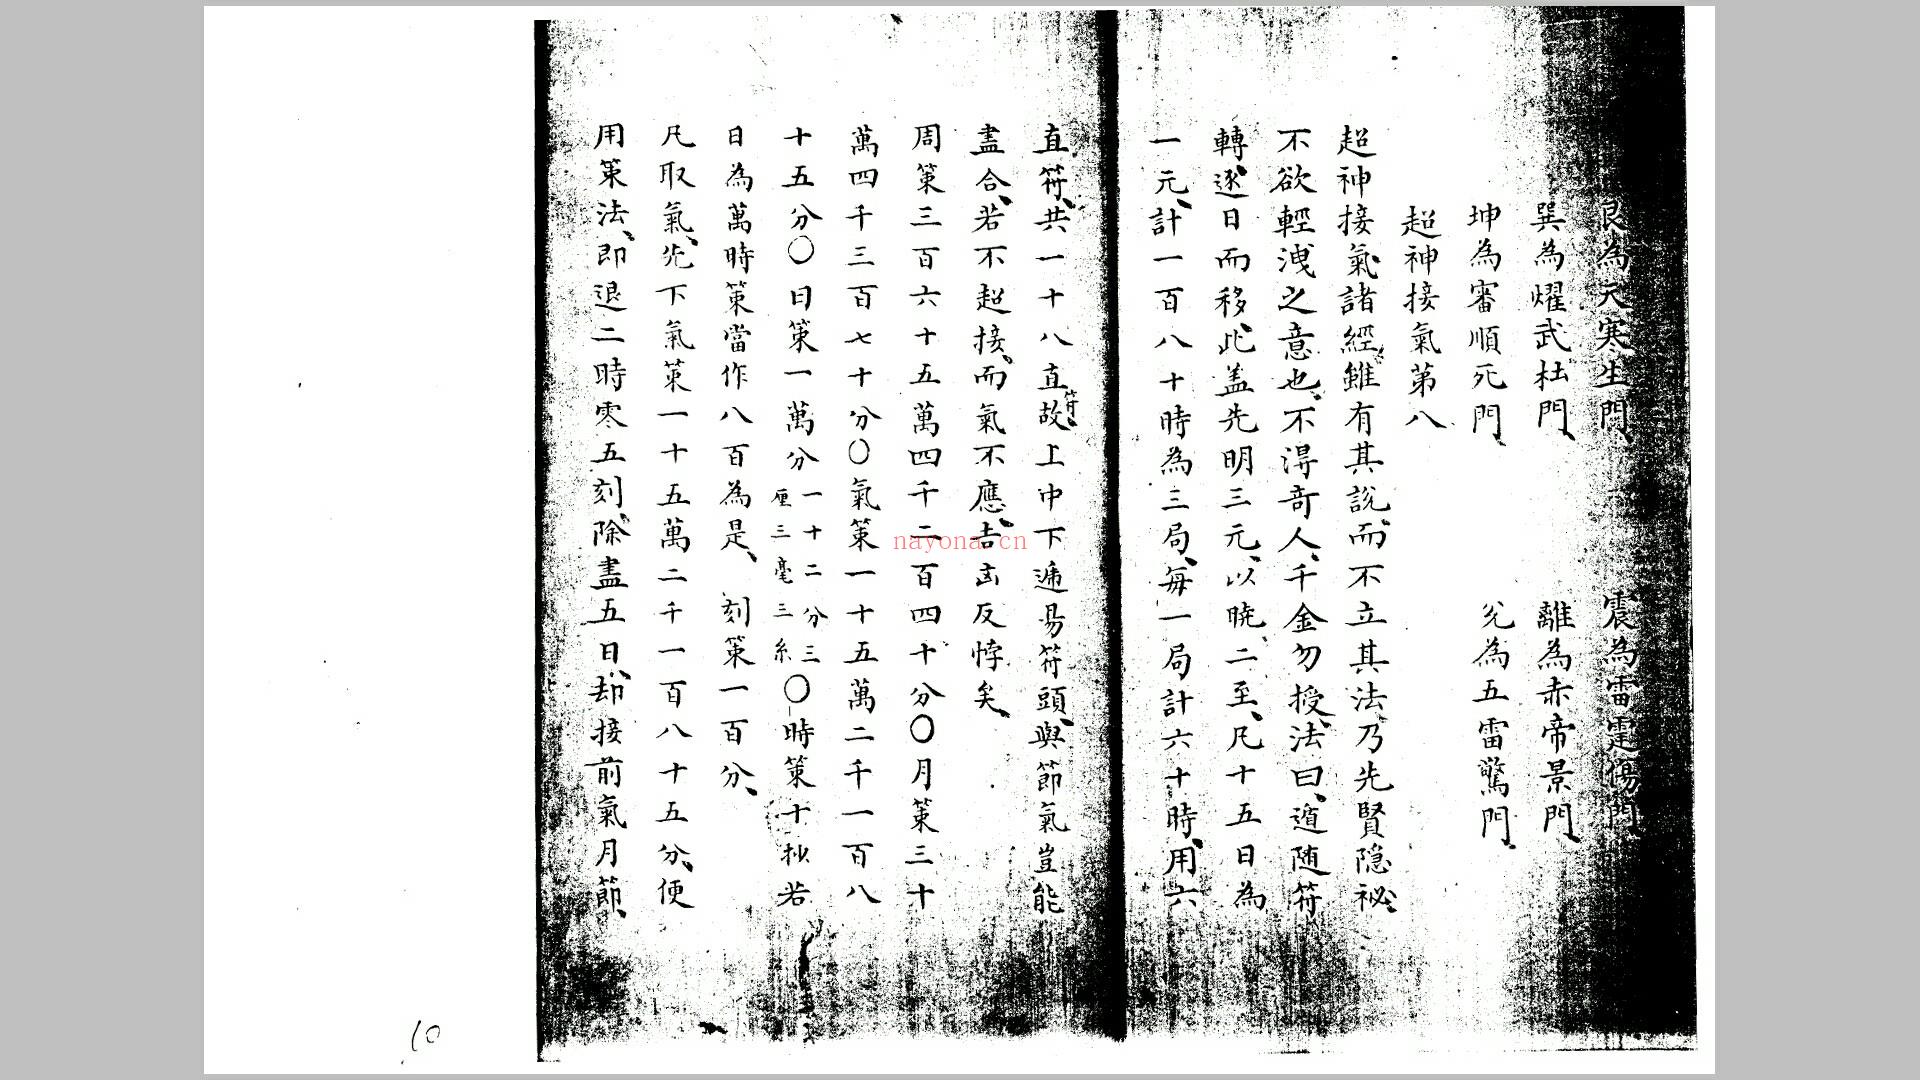 艮為天寒生門、　震為雷霆傷門、
巽為燿武杜門、　離為赤帝景門、
坤為審順死門、　兊為五雷驚門、
超神接氣第八
超神接氣諸經雖有其說而不立其法乃先賢隐祕、
不欲輕洩之意也、不淂竒人、千金勿授、法曰、遁随符
轉、逐日而移、此盖先明三元、以暁二至、凡十五日為
一元、計一百八十時為三局、每一局計六十時、用六
直符、共一十八直符故、上中下遞易符頭、與節氣豈能
盡合、若不超接、而氣不應、吉㐫反悖矣、
周策三百六十五萬四千二百四十分〇月策三十
萬四千三百七十分〇氣策一十五萬二千一百八
十五分〇日策一萬分一十二分三厘三毫三糸〇時策十秒若
日為萬時策當作八百為是、刻策一百分、
凡取氣、先下氣策一十五萬二千一百八十五分、便
用策法、即退二時零五刻、除盡五日、却接前氣月節、
10
nayona.cn